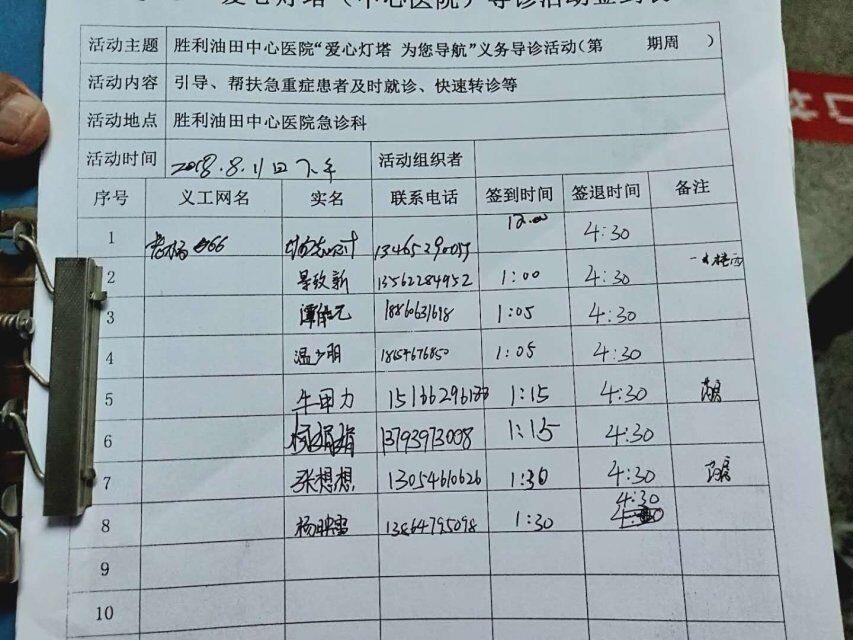 爱心灯塔（中心医院）导诊活动签到表
活动主题 胜利油田中心医院“爱心灯塔 为您导航”义务导诊活动（第 期周 ）
活动内容 引导、帮扶急重症患者及时就诊、快速转诊等
活动地点 胜利油田中心医院急诊科
活动时间 2018.8.11日下午 活动组织者
序号 义工网名 实名 联系电话 签到时间 签退时间 备注
1 老杨 66 12:00 4:30
2 13562284952 1:00 4:30
3 谭能元 1:05 4:30
4 温少明 1:05 4:30
5 牛甲力 1:15 4:30
6 13793973008 1:15 4:30
7 张想想 13054610626 1:30 4:30
8 杨映雪 13864795098 1:30 4:30
9
10